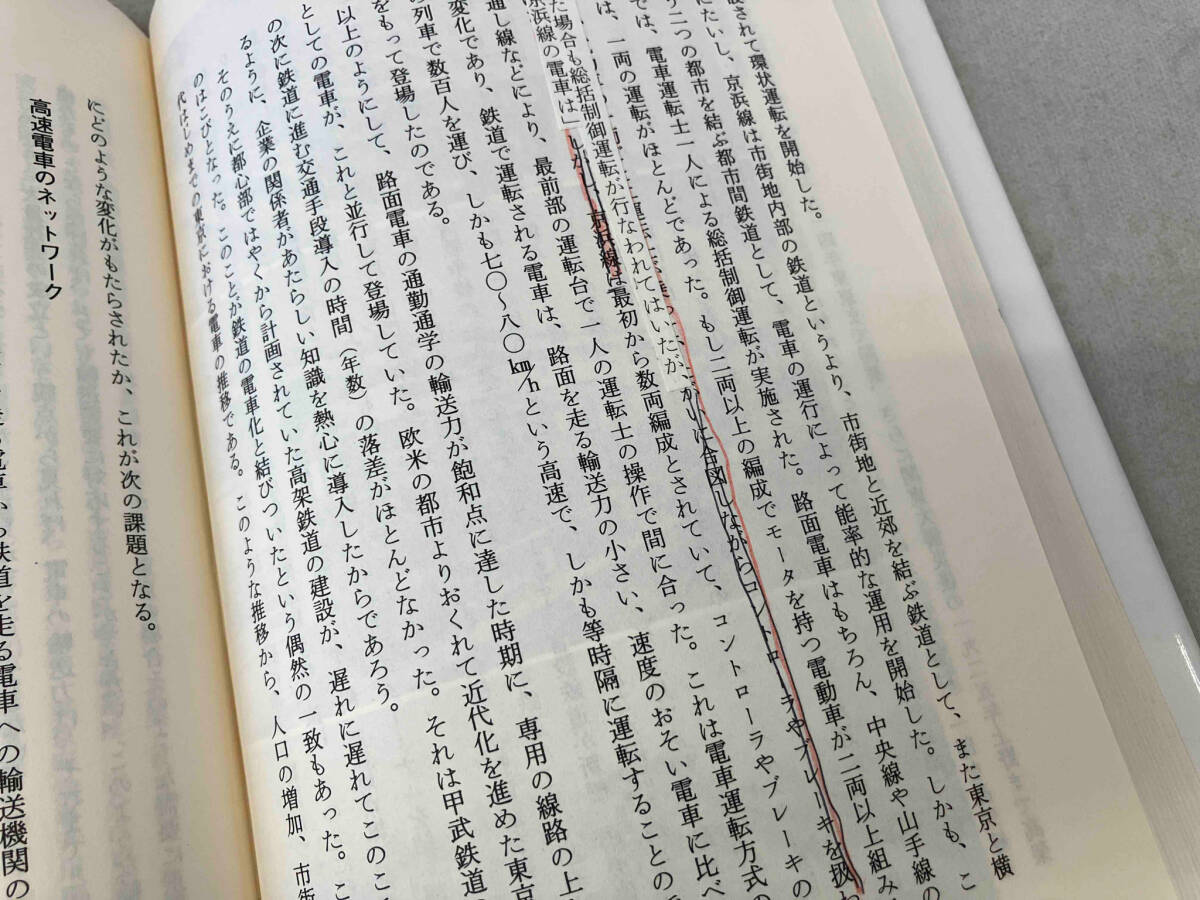 されて環状運転を開始した。
にたいし、京浜線は市街地内部の鉄道というより、市街地と近郊を結ぶ鉄道として、また東京と横
う二つの都市を結ぶ都市間鉄道として、電車の運行によって能率的な運用を開始した。しかも、こ
では、電車運転士一人による総括制御運転が実施された。路面電車はもちろん、中央線や山手線の
は、一両の運転がほとんどであった。もし二両以上の編成でモータを持つ電動車が二両以上組み
た場合も総括制御運転が行なわれてはいたが、
がいに合図しながらコントローラやブレーキを扱わ
京浜線の電車は」
しかし、京浜線は最初から数両編成とされていて、コントローラやブレーキの
通し線などにより、最前部の運転台で一人の運転士の操作で間に合った。これは電車運転方式の
変化であり、鉄道で運転される電車は、路面を走る輸送力の小さい、速度のおそい電車に比べ
の列車で数百人を運び、しかも七〇〜八〇km/hという高速で、しかも等時隔に運転することの
をもって登場したのである。
以上のようにして、路面電車の通勤通学の輸送力が飽和点に達した時期に、専用の線路の上
としての電車が、これと並行して登場していた。欧米の都市よりおくれて近代化を進めた東京
の次に鉄道に進む交通手段導入の時間（年数）の落差がほとんどなかった。それは甲武鉄道
るように、企業の関係者があたらしい知識を熱心に導入したからであろう。
そのうえに都心部でははやくから計画されていた高架鉄道の建設が、遅れに遅れてこのこ
のはこびとなった。このことが鉄道の電車化と結びついたという偶然の一致もあった。こ
代はじめまでの東京における電車の推移である。このような推移から、人口の増加、市街
にどのような変化がもたらされたか、これが次の課題となる。
高速電車のネットワーク
電車から鉄道を走る電車への輸送機関の